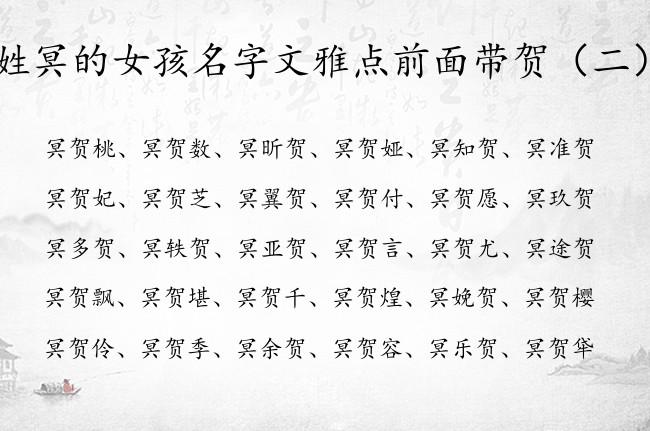 姓冥的女孩名字文雅点前面带贺（二）
冥贺桃、冥贺数、冥昕贺、冥贺娅、冥知贺、冥准贺
冥贺妃、冥贺芝、冥翼贺、冥贺付、冥贺愿、冥玖贺
冥多贺、冥轶贺、冥亚贺、冥贺言、冥贺尤、冥途贺
冥贺飘、冥贺堪、冥贺千、冥贺煌、冥娩贺、冥贺樱
冥贺伶、冥贺季、冥余贺、冥贺容、冥乐贺、冥贺牮